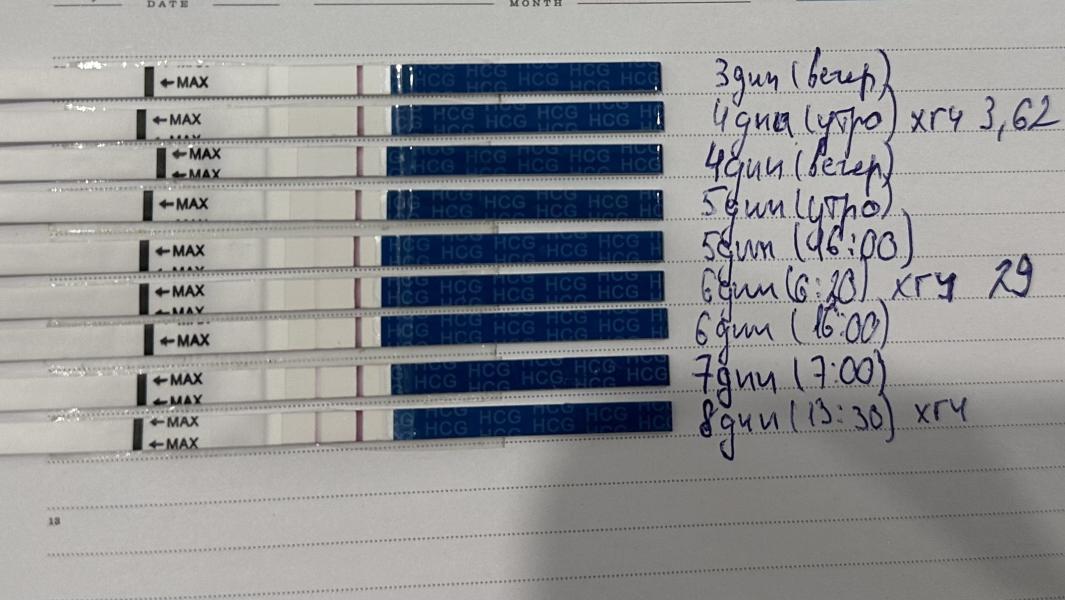 DATE MONTH
←MAX HCG HCG HCG HCG HCG 3 дпп (вечер)
←MAX HCG HCG HCG HCG HCG 4 дпп (утро) хгч 3,62
←MAX HCG HCG HCG HCG HCG 4 дпп (вечер)
←MAX HCG HCG HCG HCG HCG 5 дпп (утро)
←MAX HCG HCG HCG HCG HCG 5 дпп (16:00)
←MAX HCG HCG HCG HCG HCG 6 дпп (6:20) хгч 29
←MAX HCG HCG HCG HCG HCG 6 дпп (16:00)
←MAX HCG HCG HCG HCG HCG 7 дпп (7:00)
←MAX HCG HCG HCG HCG HCG 8 дпп (13:30) хгч
←MAX
13